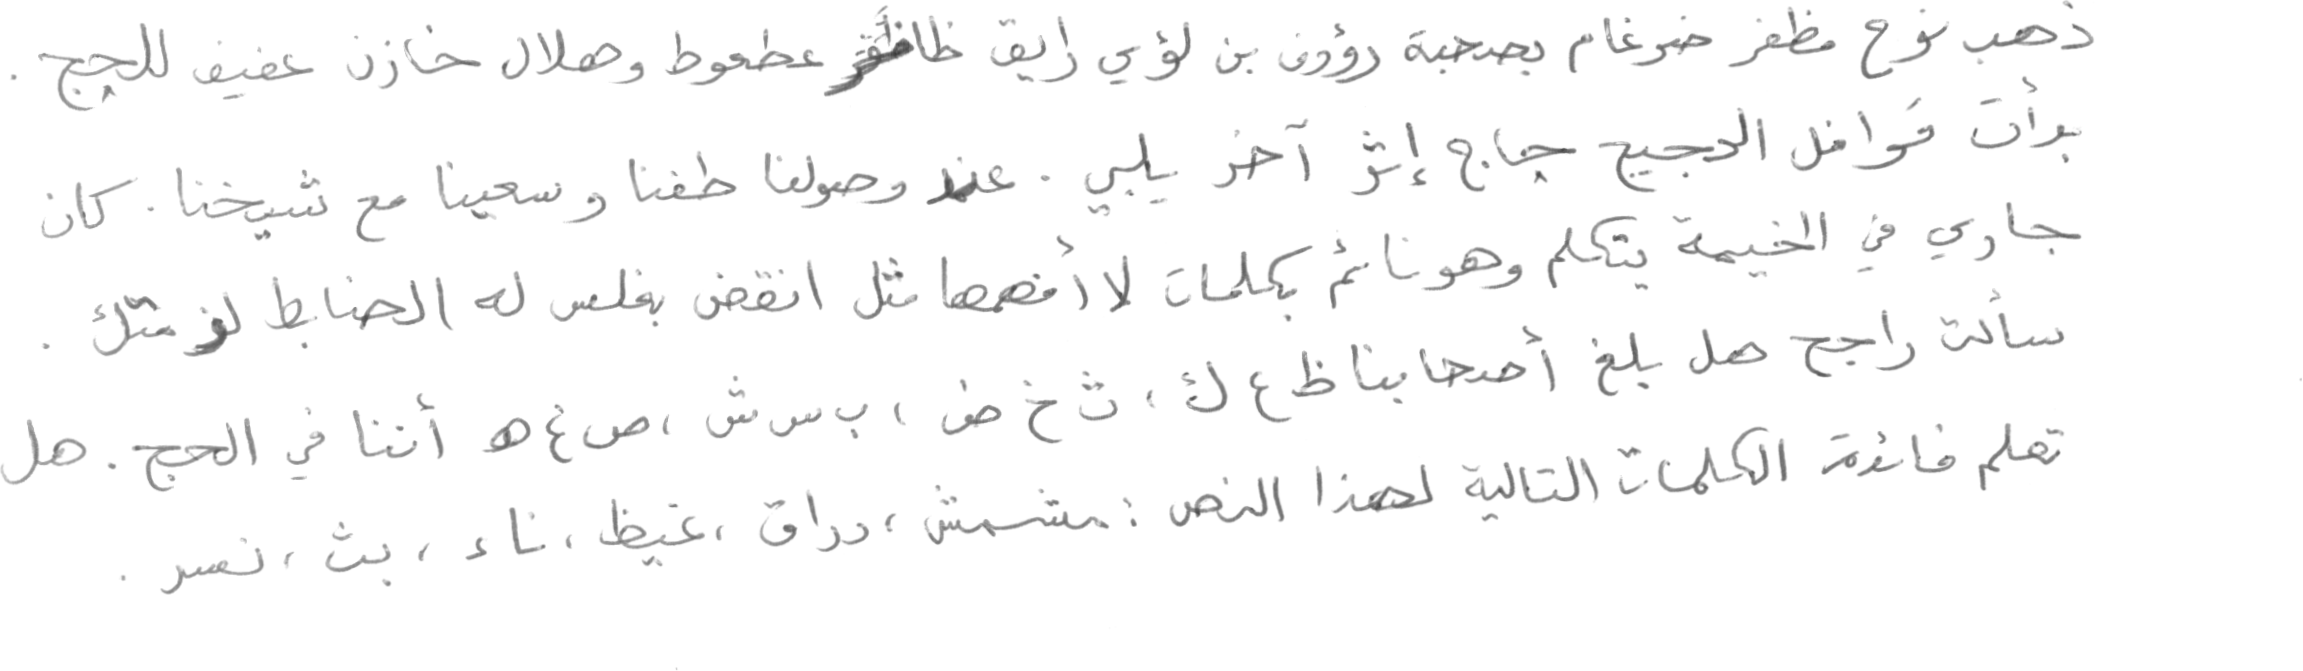 ذهب نوح مظفر ضرغام بصحبة رؤوف بن لؤي رايق ظافر عطعوط وهلال خازن عفيف للحج .
بدأت قوافل الحجيج حاج إثر آخر يلبي . عند وصولنا طفنا وسعينا مع شيخنا . كان
جاري في الخيمة يتكلم وهو نائم بكلمات لا أفهمها مثل انقض بغلس له الضابط لز متك .
سألت راجح هل بلغ أصحابنا ظ ع ك ، ث خ ض ، ب س ش ، ص غ ه أننا في الحج . هل
تعلم فائدة الكلمات التالية لهذا النص : مشمش ، دراق ، غيظ ، ناء ، بث ، نسر .